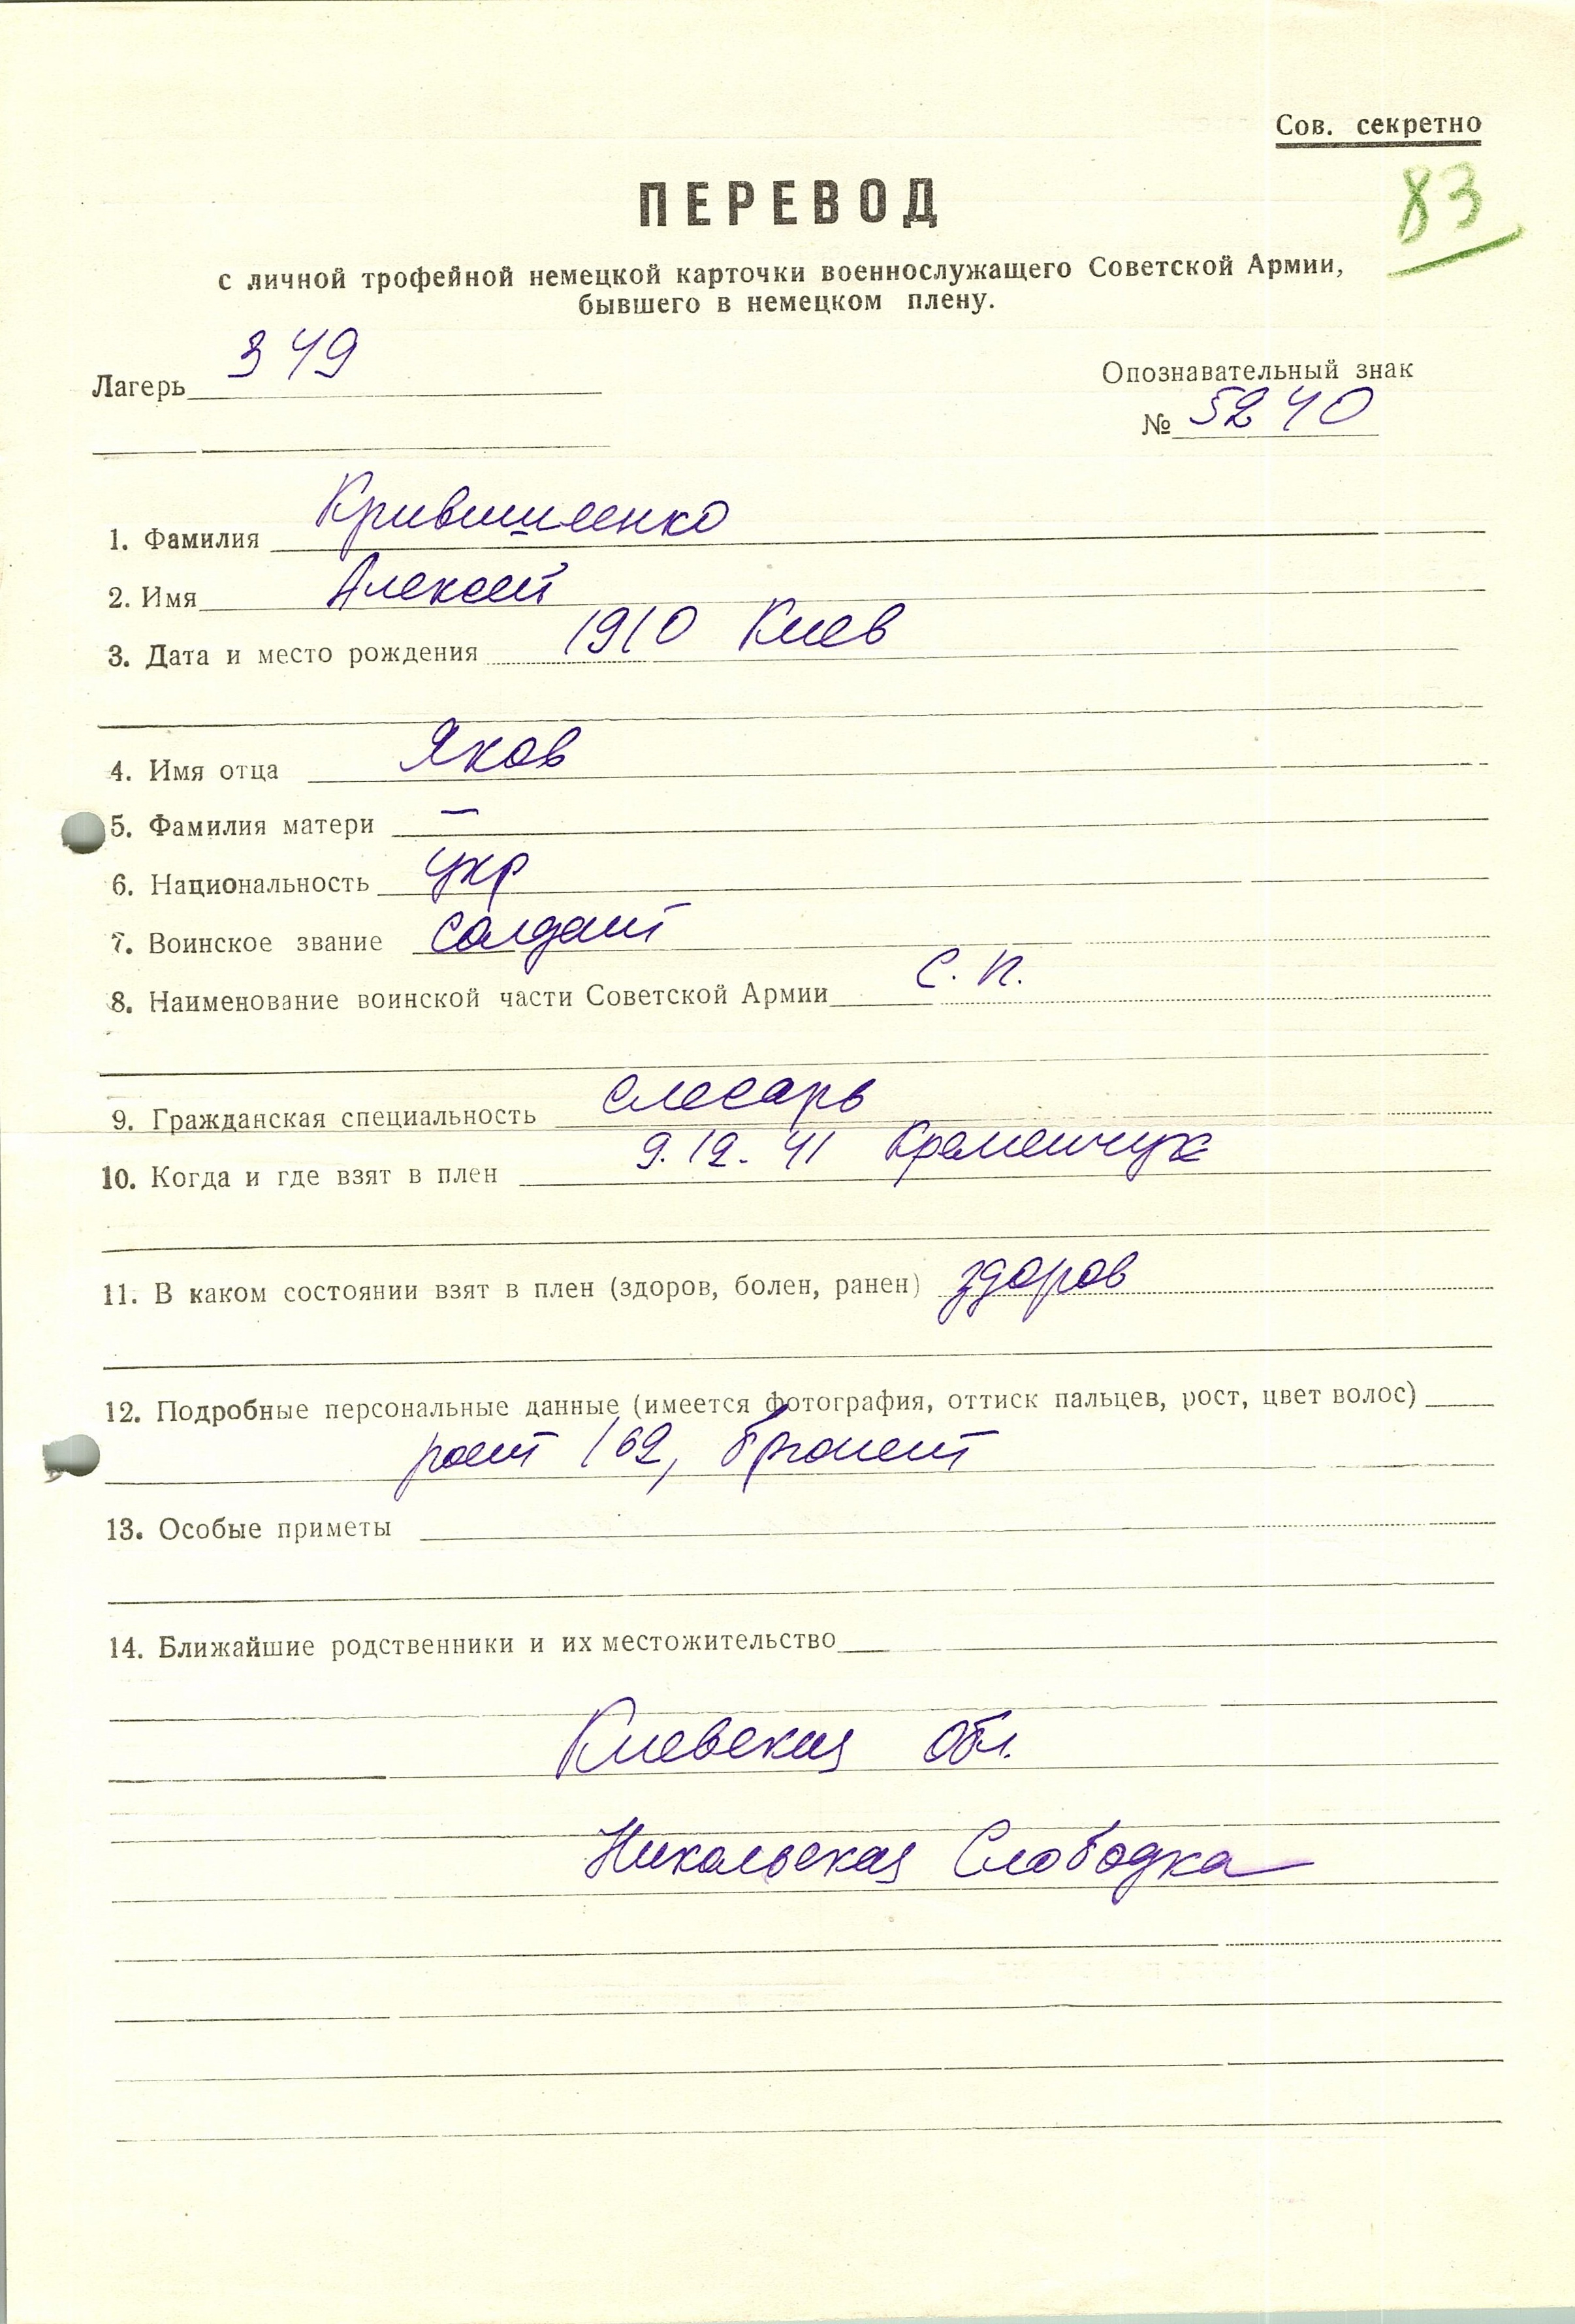 Сов. секретно
83
ПЕРЕВОД
с личной трофейной немецкой карточки военнослужащего Советской Армии,
бывшего в немецком плену.
Лагерь 349
Опознавательный знак
№ 5240
1. Фамилия Крившиленко
2. Имя Алексей
3. Дата и место рождения 1910 Киев
4. Имя отца Яков
5. Фамилия матери —
6. Национальность укр
7. Воинское звание солдат
8. Наименование воинской части Советской Армии С. п.
9. Гражданская специальность слесарь
10. Когда и где взят в плен 9.12.41 Кременчук
11. В каком состоянии взят в плен (здоров, болен, ранен) здоров
12. Подробные персональные данные (имеется фотография, оттиск пальцев, рост, цвет волос)
рост 162, брюнет
13. Особые приметы
14. Ближайшие родственники и их местожительство
Киевская обл.
Никольская Слободка